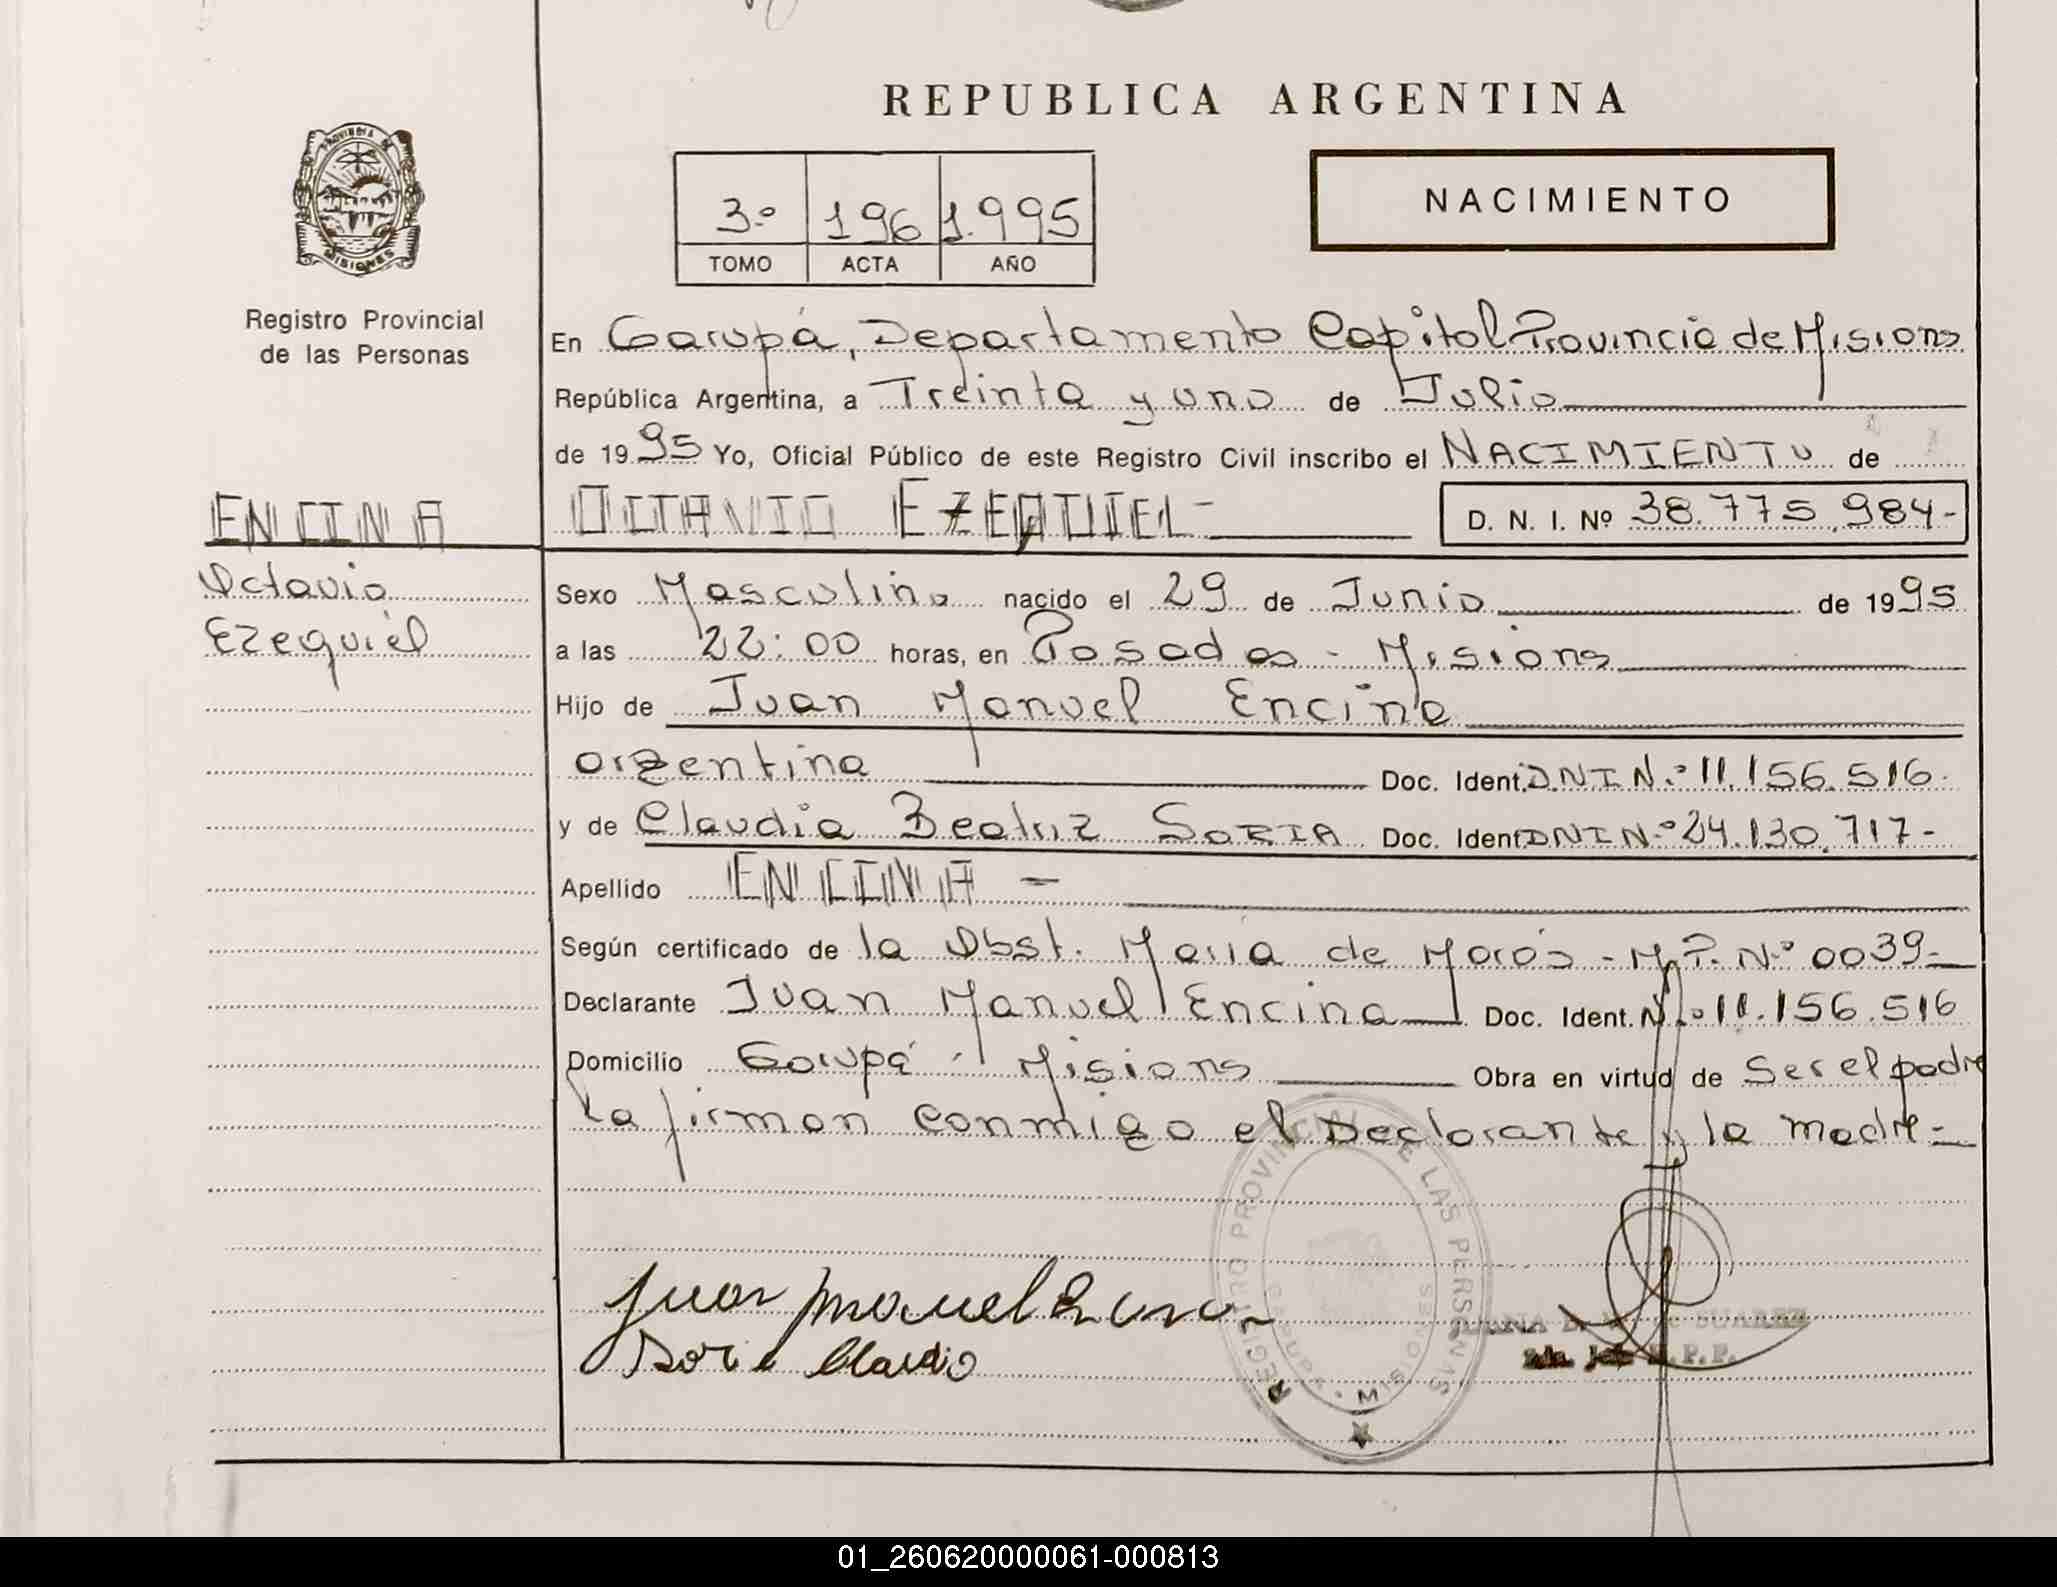 REPUBLICA ARGENTINA
PROVINCIA DE
MISIONES
Registro Provincial
de las Personas
3.º 196 1.995
TOMO ACTA AÑO
NACIMIENTO
En Garupá, Departamento Capital Provincia de Misiones
República Argentina, a Treinta y uno de Julio
de 1995 Yo, Oficial Público de este Registro Civil inscribo el NACIMIENTO de
ENCINA
OCTAVIO EZEQUIEL- D. N. I. Nº 38.775.984-
Octavio
Ezequiel
Sexo Masculino nacido el 29 de Junio de 1995
a las 22:00 horas, en Posadas - Misiones
Hijo de Juan Manuel Encina
argentina Doc. Ident. DNI N.º 11.156.516-
y de Claudia Beatriz SORIA Doc. Ident DNI N.º 24.130.717-
Apellido ENCINA -
Según certificado de la Obst. Maria de Moros - M.P. N.º 0039-
Declarante Juan Manuel Encina Doc. Ident. N.º 11.156.516
Domicilio Garupá - Misiones Obra en virtud de Ser el padre
La firman conmigo el Declarante y la madre-
Juan Manuel
Soria Claudio
REGISTRO PROVINCIAL DE LAS PERSONAS
GARUPA - MISIONES
SUAREZ
R.P.P.
01_260620000061-000813